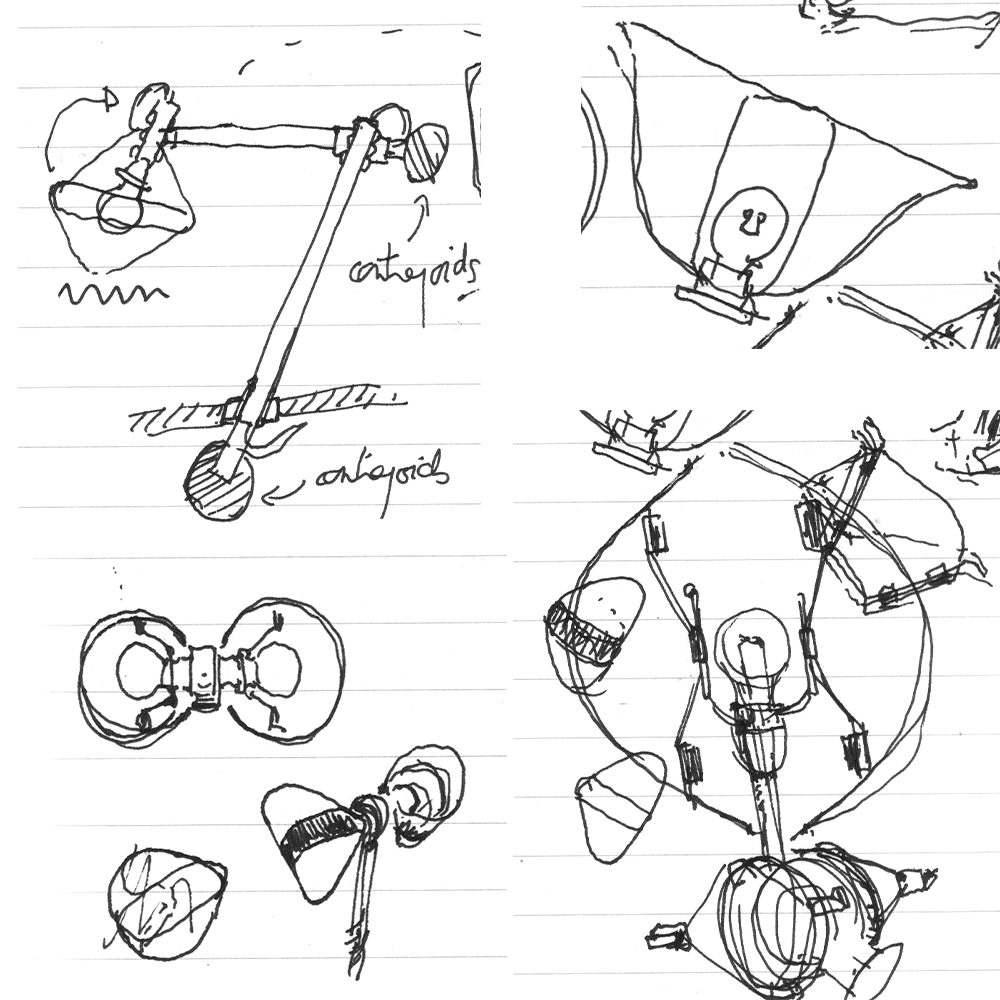 contrepoids
contrepoids